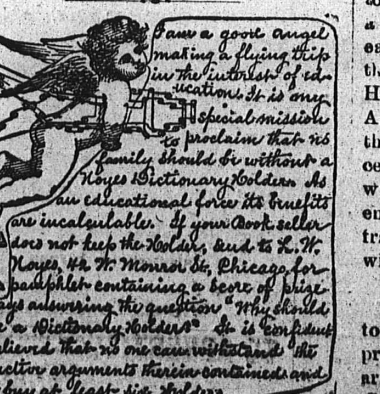 I am a good angel
making a flying trip
in the interest of ed-
ucation. It is my
special mission
to proclaim that no
family should be without a
Noyes Dictionary Holder. As
an educational force its benefits
are incalculable. If your Book seller
does not keep the Holder, send to L. W.
Noyes, 42 W. Monroe St, Chicago, for
pamphlet containing a score of prize
answering the question "Why should
a Dictionary Holder?" It is confident
believed that no one can withstand the
arguments therein contained and
buy at least six Holders